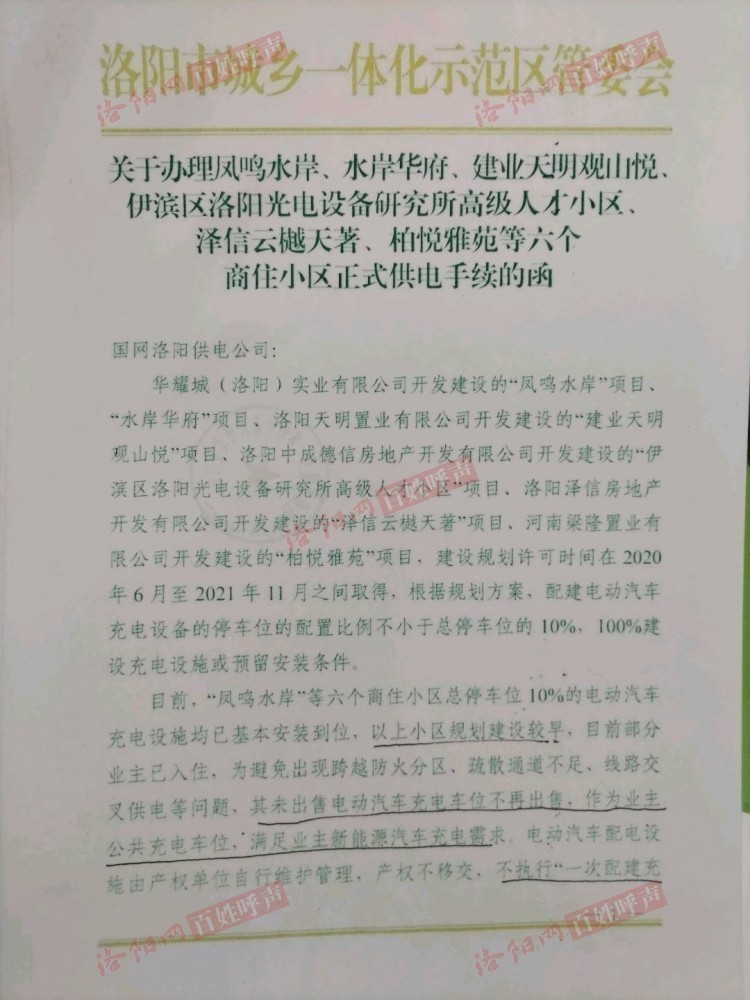 洛阳市城乡一体化示范区管委会
关于办理凤鸣水岸、水岸华府、建业天明观山悦、
伊滨区洛阳光电设备研究所高级人才小区、
泽信云樾天著、柏悦雅苑等六个
商住小区正式供电手续的函
国网洛阳供电公司：
华耀城（洛阳）实业有限公司开发建设的“凤鸣水岸”项目、
“水岸华府”项目、洛阳天明置业有限公司开发建设的“建业天明
观山悦”项目、洛阳中成德信房地产开发有限公司开发建设的“伊
滨区洛阳光电设备研究所高级人才小区”项目、洛阳泽信房地产
开发有限公司开发建设的“泽信云樾天著”项目、河南梁隆置业有
限公司开发建设的“柏悦雅苑”项目，建设规划许可时间在 2020
年 6 月至 2021 年 11 月之间取得，根据规划方案，配建电动汽车
充电设备的停车位的配置比例不小于总停车位的 10%，100%建
设充电设施或预留安装条件。
目前，“凤鸣水岸”等六个商住小区总停车位 10%的电动汽车
充电设施均已基本安装到位，以上小区规划建设较早，目前部分
业主已入住，为避免出现跨越防火分区、疏散通道不足、线路交
叉供电等问题，其未出售电动汽车充电车位不再出售，作为业主
公共充电车位，满足业主新能源汽车充电需求。电动汽车配电设
施由产权单位自行维护管理，产权不移交，不执行“一次配建充
洛阳网 百姓呼声
洛阳网 百姓呼声
洛阳网 百姓呼声
洛阳网 百姓呼声
洛阳网 百姓呼声